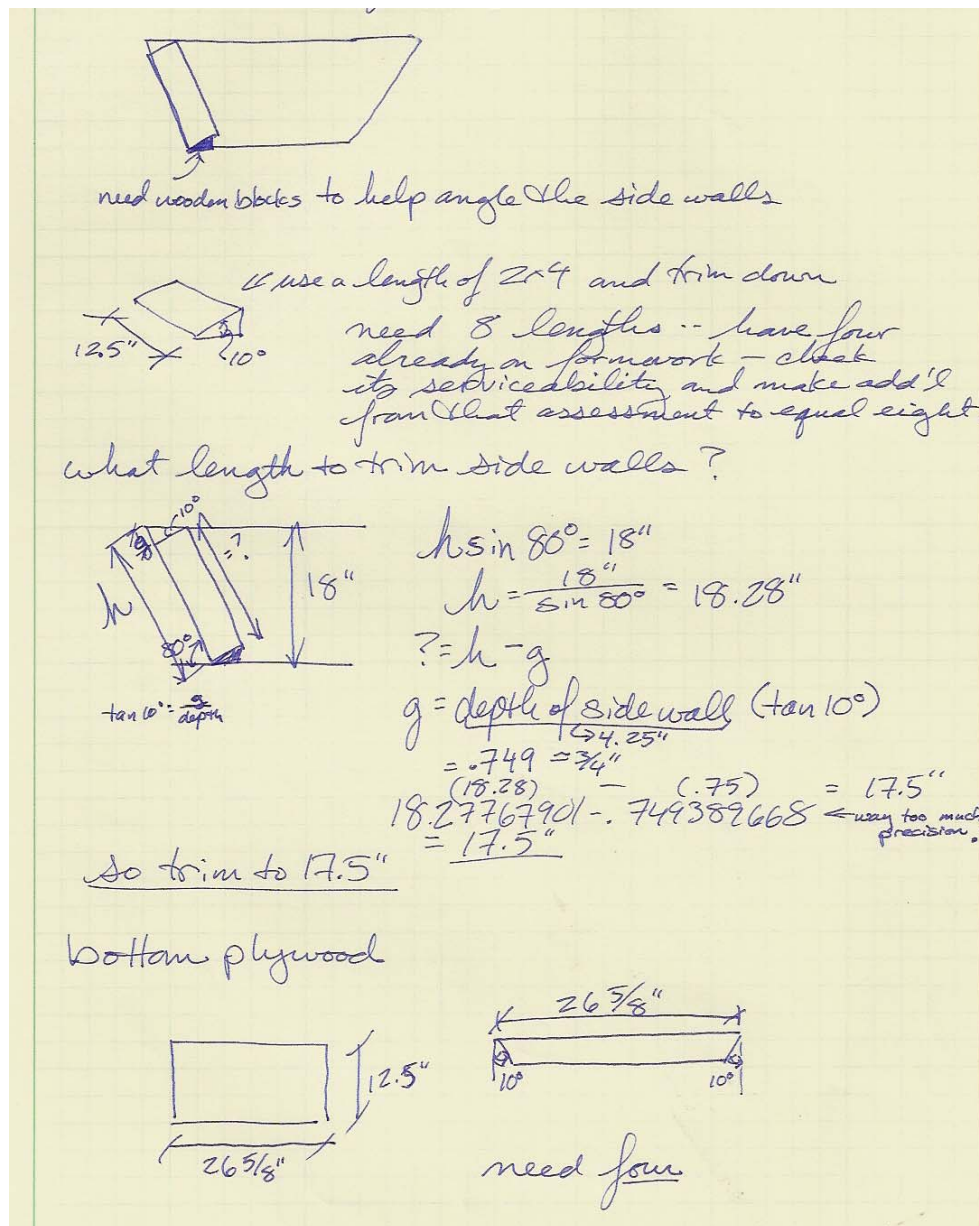 need wooden blocks to help angle the side walls
use a length of 2x4 and trim down
12.5"
10°
need 8 lengths -- have four
already on formwork - check
its serviceability and make add'l
from that assessment to equal eight
what length to trim side walls?
10°
g
=?
h
18"
80°
tan 10° = g/depth
h sin 80° = 18"
h = 18"/sin 80° = 18.28"
? = h - g
g = depth of side wall (tan 10°)
4.25"
= .749 = 3/4"
(18.28) - (.75) = 17.5"
18.27767901 - .749389668 ← way too much precision.
= 17.5"
so trim to 17.5"
bottom plywood
12.5"
26 5/8"
26 5/8"
10°
10°
need four